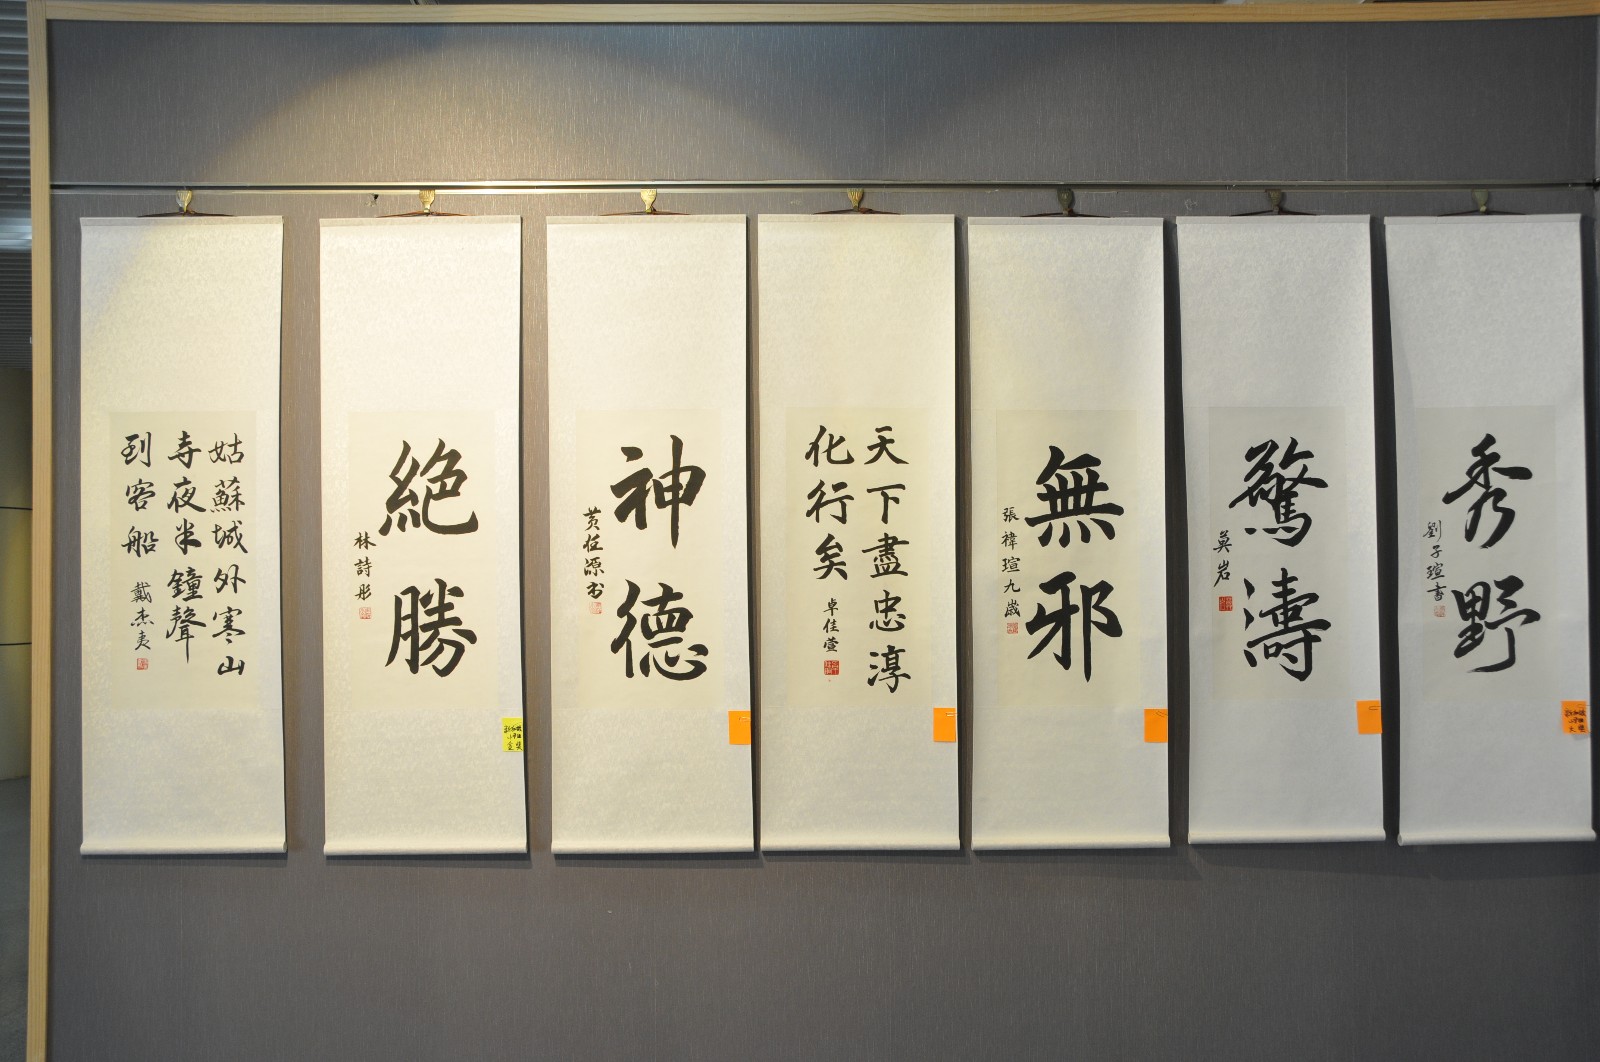 姑蘇城外寒山
寺夜半鐘聲
到客船
戴杰夷
絕勝
林詩彤
神德
黃任源书
天下盡忠淳
化行矣
卓佳萱
無邪
張禕瑄九歲
驚濤
莫岩
秀野
劉子瑄書